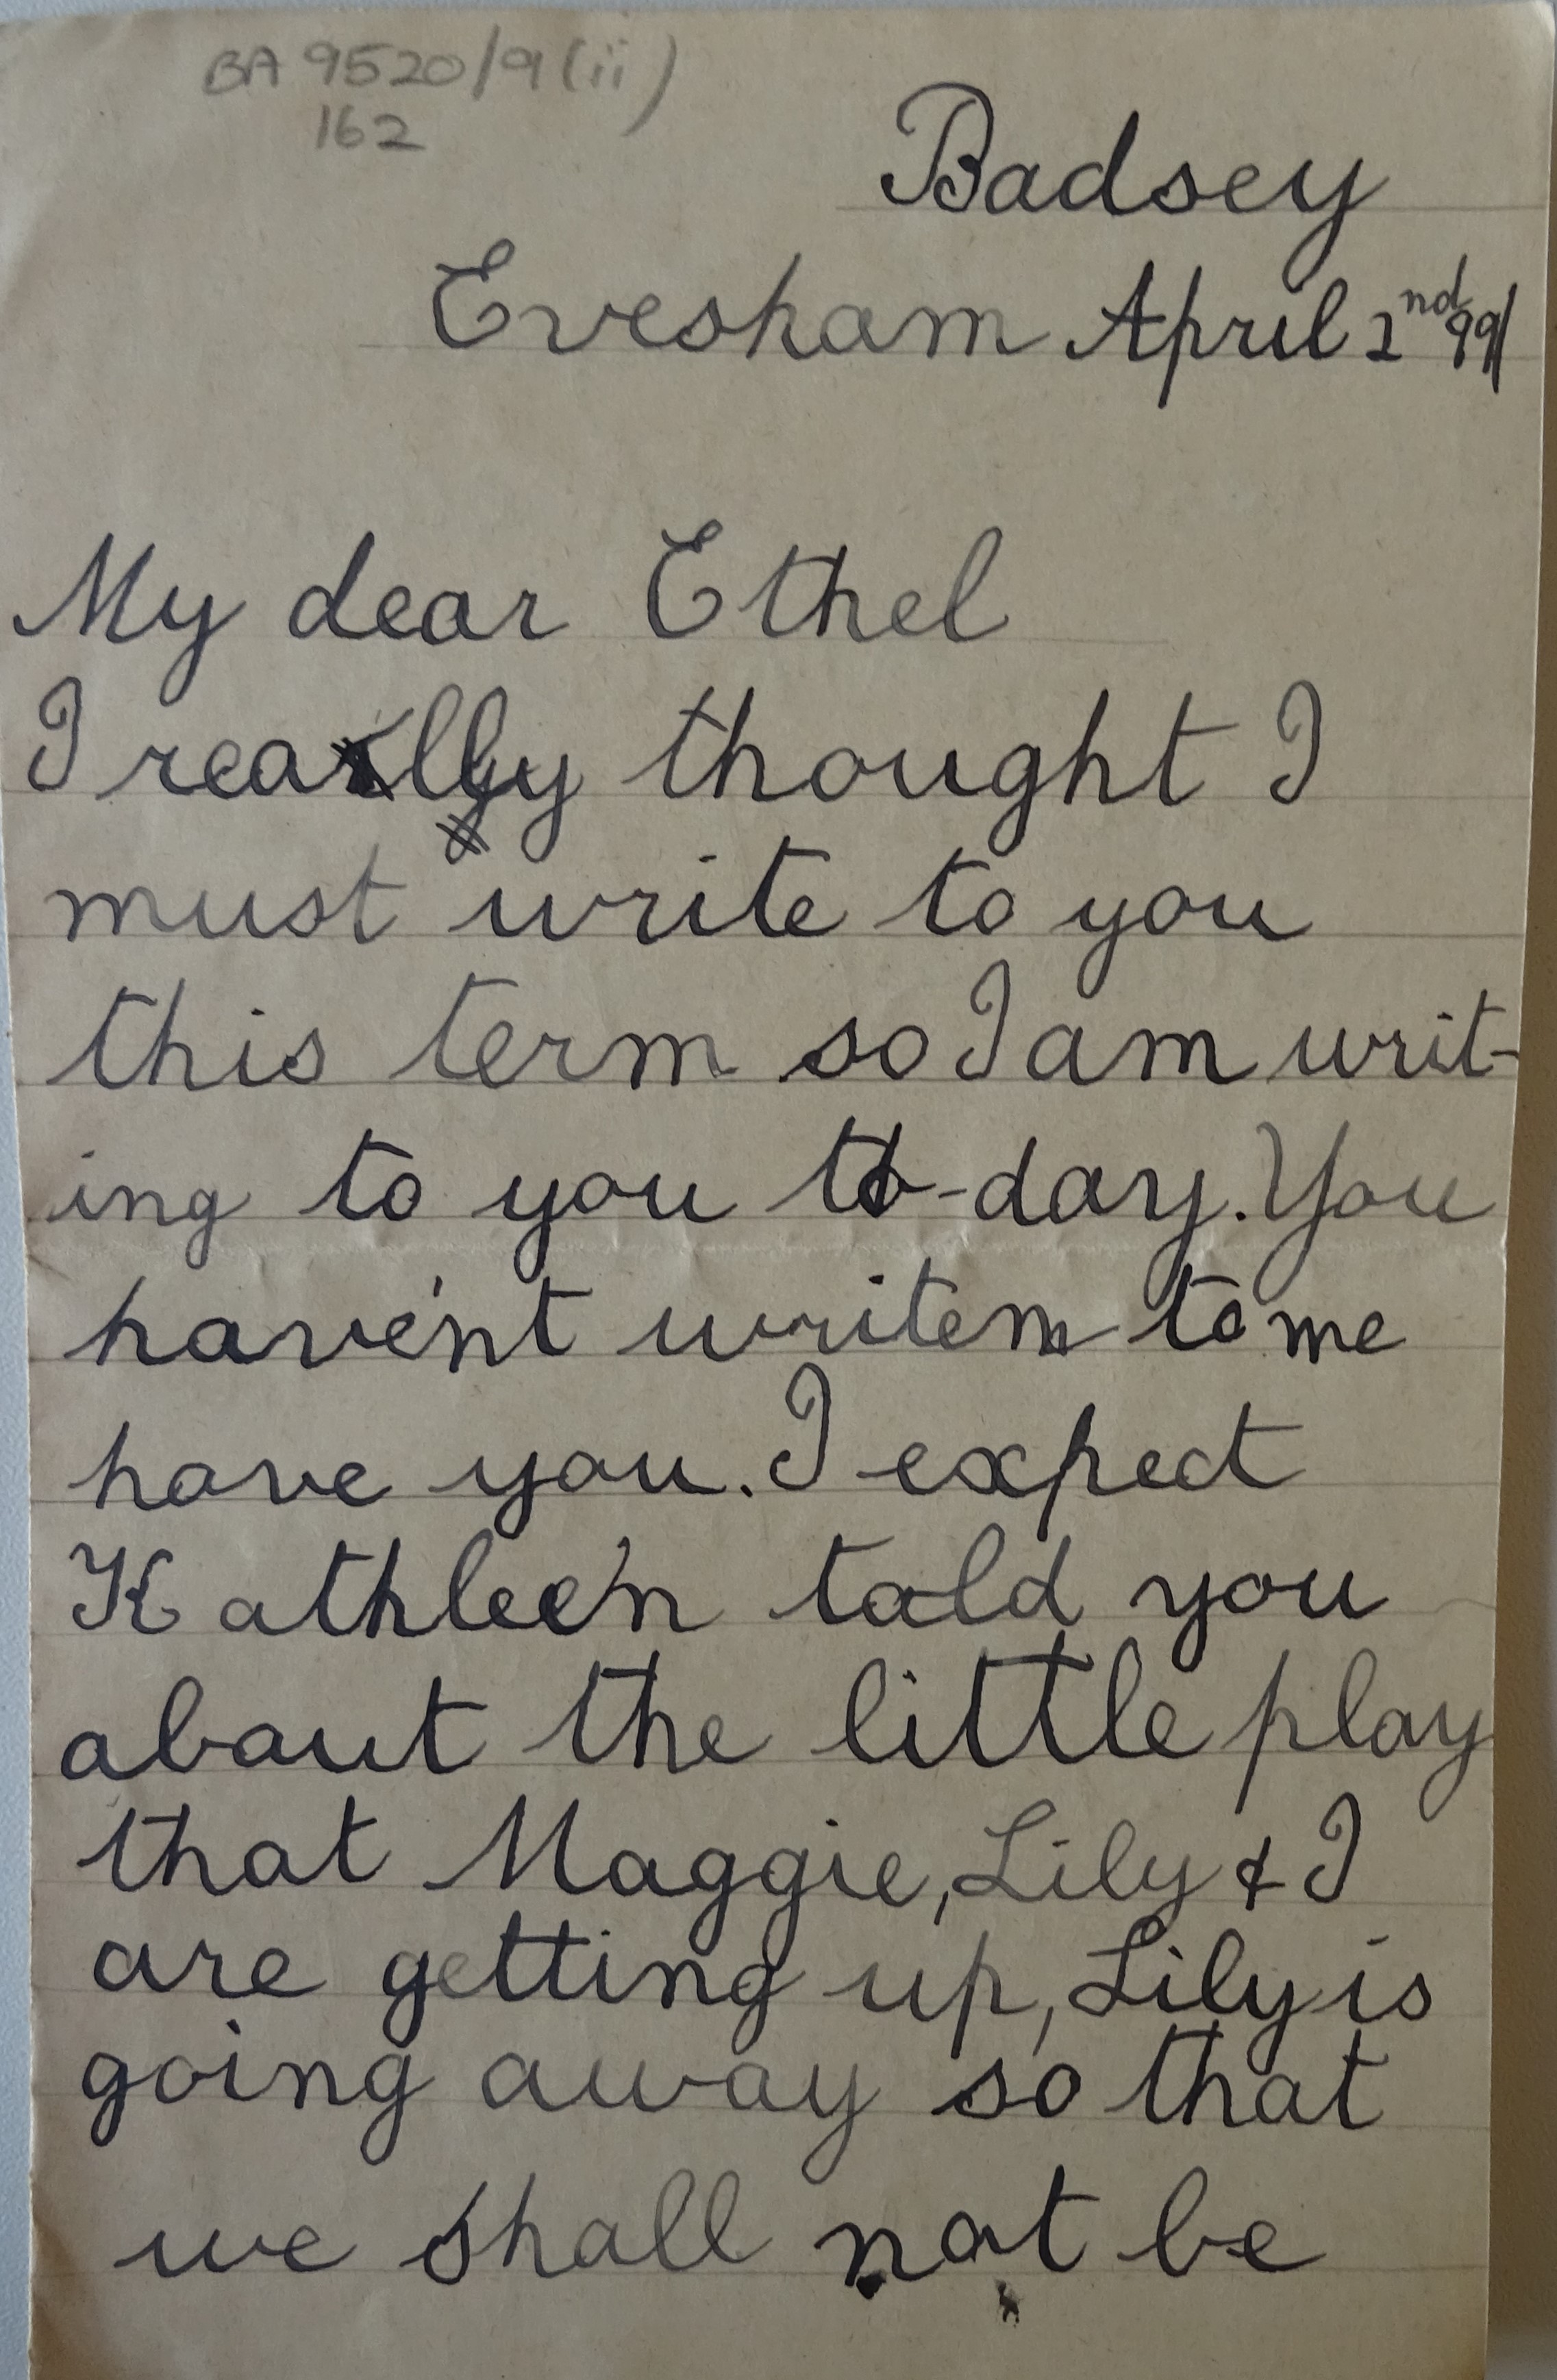 BA 9520/9(ii)
162
Badsey
Evesham April 2nd 99/
My dear Ethel
I really thought I
must write to you
this term so I am writ-
ing to you to-day. You
have'nt writen to me
have you. I expect
Kathleen told you
about the little play
that Maggie, Lily & I
are getting up, Lily is
going away so that
we shall not be